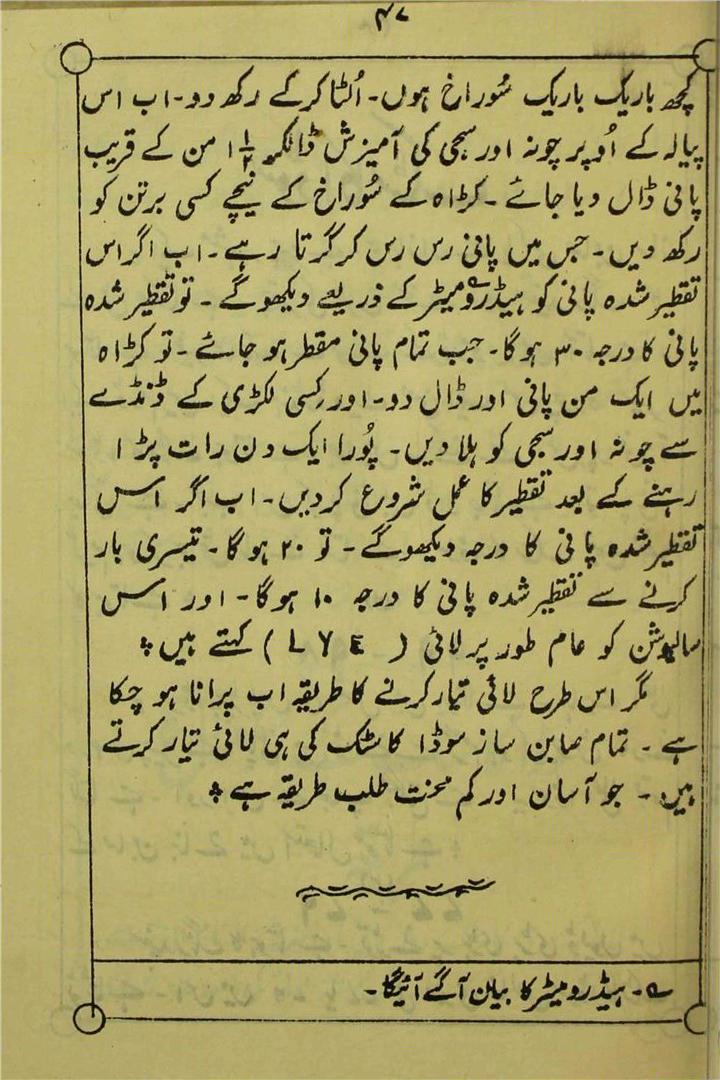 ۴۷
کچھ باریک باریک سُوراخ ہوں۔ اُلٹا کرکے رکھ دو۔ اب اس
پیالہ کے اُوپر چونہ اور سجی کی آمیزش ڈالکر ۱½ من کے قریب
پانی ڈال دیا جائے ۔ کڑاہ کے سُوراخ کے نیچے کسی برتن کو
رکھ دیں۔ جس میں پانی رس رس کر گرتا رہے ۔ اب اگر اس
تقطیر شدہ پانی کو ہیڈرومیٹر کے ذریعے دیکھوگے ۔ تو تقطیر شدہ
پانی کا درجہ ۳۰ ہوگا۔ جب تمام پانی مقطر ہو جائے ۔ تو کڑاہ
میں ایک من پانی اور ڈال دو۔ اور کسی لکڑی کے ڈنڈے
سے چونہ اور سجی کو ہلا دیں۔ پُورا ایک دن رات پڑا
رہنے کے بعد تقطیر کا عمل شروع کردیں۔ اب اگر اس
تقطیر شدہ پانی کا درجہ دیکھوگے ۔ تو ۲۰ ہوگا۔ تیسری بار
کرنے سے تقطیر شدہ پانی کا درجہ ۱۰ ہوگا۔ اور اس
سالیوشن کو عام طور پر لائی ( LYE ) کہتے ہیں ❖
مگر اس طرح لائی تیار کرنے کا طریقہ اب پرانا ہو چکا
ہے ۔ تمام صابن ساز سوڈا کاسٹک کی ہی لائی تیار کرتے
ہیں ۔ جو آسان اور کم محنت طلب طریقہ ہے ❖
؎ ۔ ہیڈرومیٹر کا بیان آگے آئیگا۔